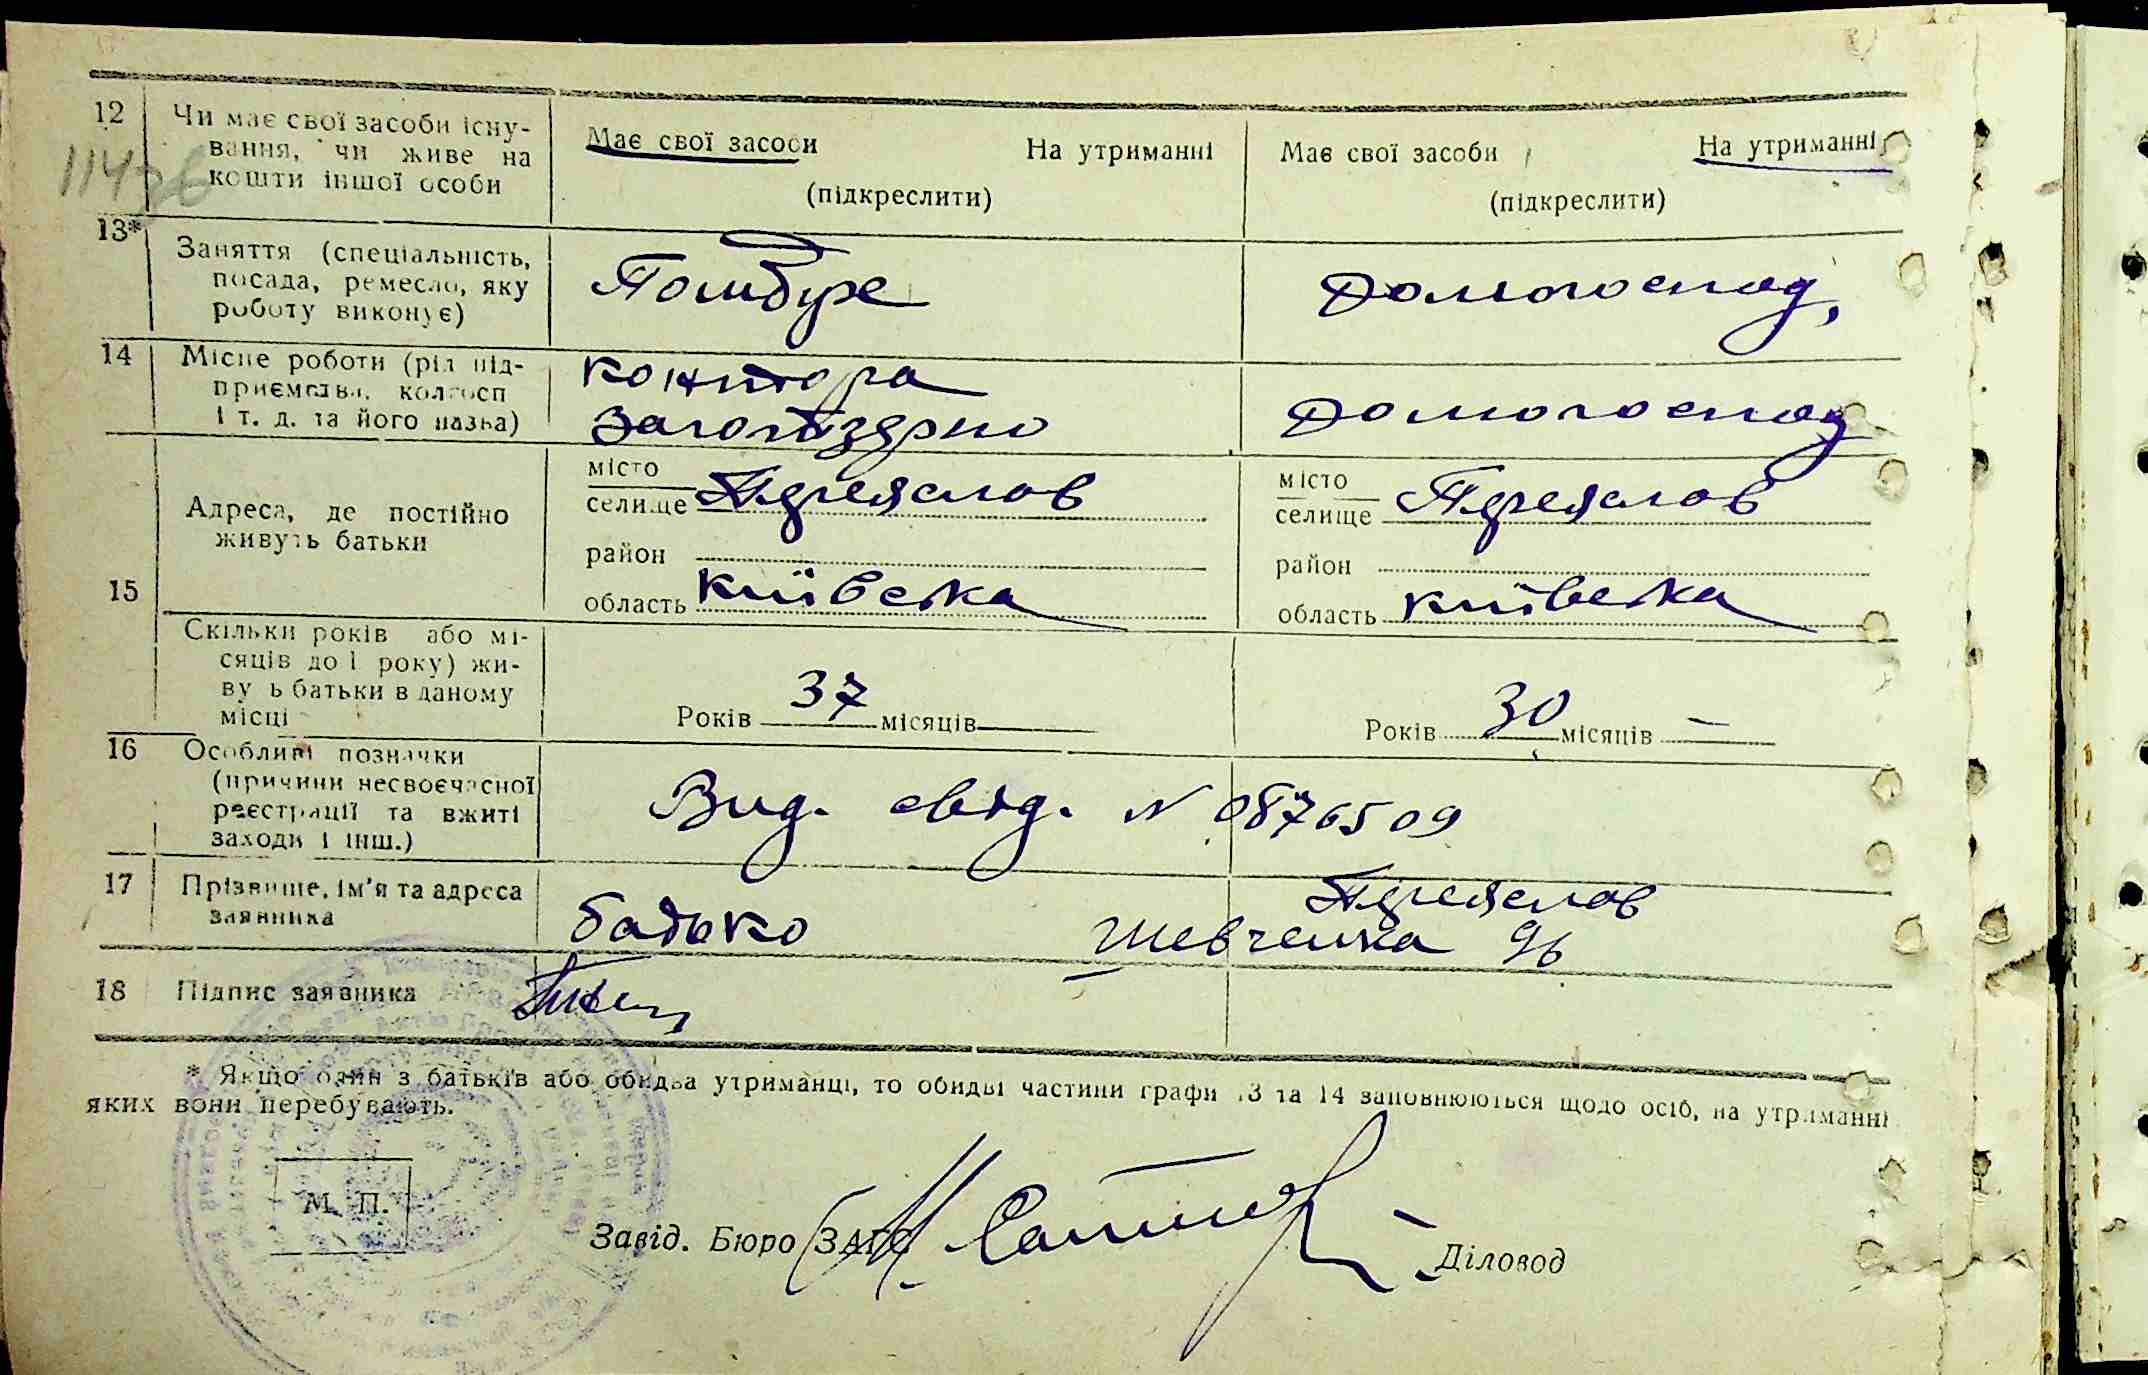 12 Чи має свої засоби існу-
вання, чи живе на
кошти іншої особи
Має свої засоби На утриманні
(підкреслити)
Має свої засоби На утриманні
(підкреслити)
11476
13* Заняття (спеціальність,
посада, ремесло, яку
роботу виконує)
Помбух
Домогоспод,
14 Місце роботи (рід під-
приємства, колгосп
і т. д. та його назва)
контора
Заготзерно
Домогоспод
15 Адреса, де постійно
живуть батьки
місто
селище Переяслав
район
область Київська
місто
селище Переяслав
район
область Київська
Скільки років або мі-
сяців до 1 року) жи-
вуть батьки в даному
місці
Років 37 місяців
Років 30 місяців —
16 Особливі позначки
(причини несвоєчасної
реєстрації та вжиті
заходи і інш.)
Вид. свід. N 0876509
17 Прізвище, ім'я та адреса
заявника
батько
Переяслав
Шевченка 96
18 Підпис заявника
* Якщо один з батьків або обидва утриманці, то обидві частини графи 13 та 14 заповнюються щодо осіб, на утриманні
яких вони перебувають.
М. П.
Завід. Бюро ЗАГС
Діловод